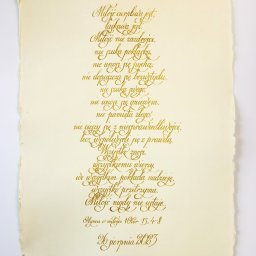 Miłość cierpliwa jest,
łaskawa jest.
Miłość nie zazdrości,
nie szuka poklasku,
nie unosi się pychą;
nie dopuszcza się bezwstydu,
nie szuka swego,
nie unosi się gniewem,
nie pamięta złego;
nie cieszy się z niesprawiedliwości,
lecz współweseli się z prawdą.
Wszystko znosi,
wszystkiemu wierzy,
we wszystkim pokłada nadzieję,
wszystko przetrzyma.
Miłość nigdy nie ustaje.
Hymn o miłości 1Kor. 13, 4-8
26 sierpnia 2023